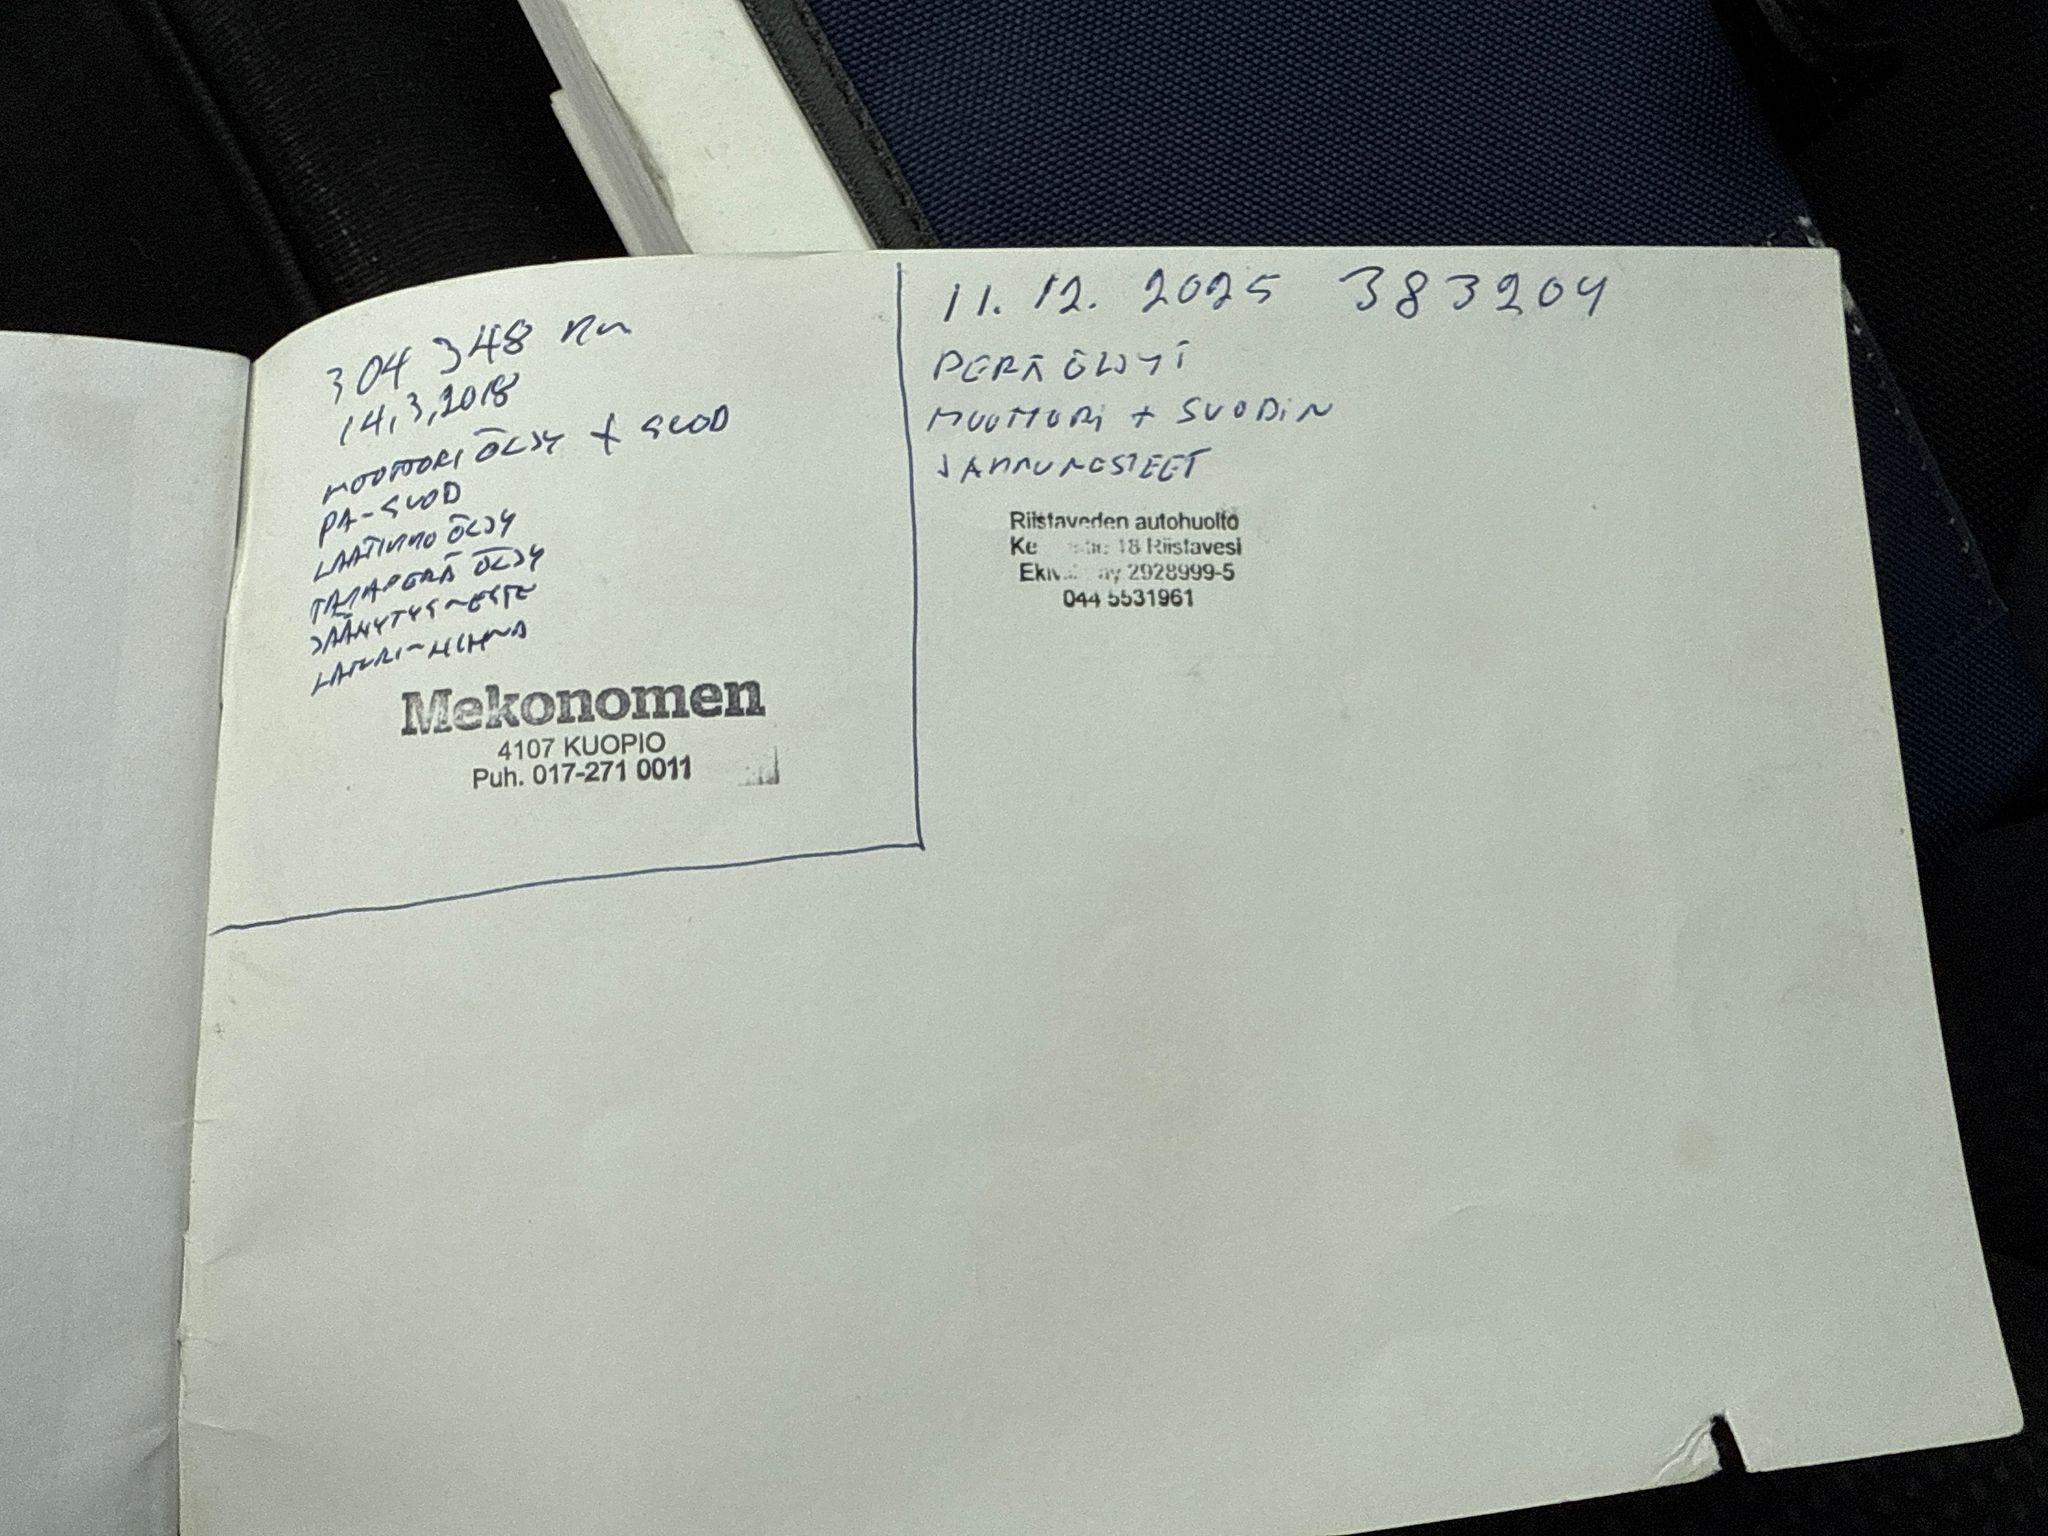 304 348 km
14.3.2018
MOOTTORI ÖLJY + SUOD
PA-SUOD
LAATIKKO ÖLJY
TAKAPERÄ ÖLJY
JÄÄHYTYS-NESTE
LATURI-HIHNA
Mekonomen
4107 KUOPIO
Puh. 017-271 0011
11.12.2025 383204
PERÄ ÖLJYT
MOOTTORI + SUODIN
JARRUNESTEET
Riistaveden autohuolto
18 Riistavesi
2928999-5
044 5531961